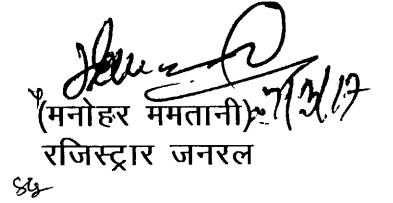 (मनोहर ममतानी) 7/3/17
रजिस्ट्रार जनरल